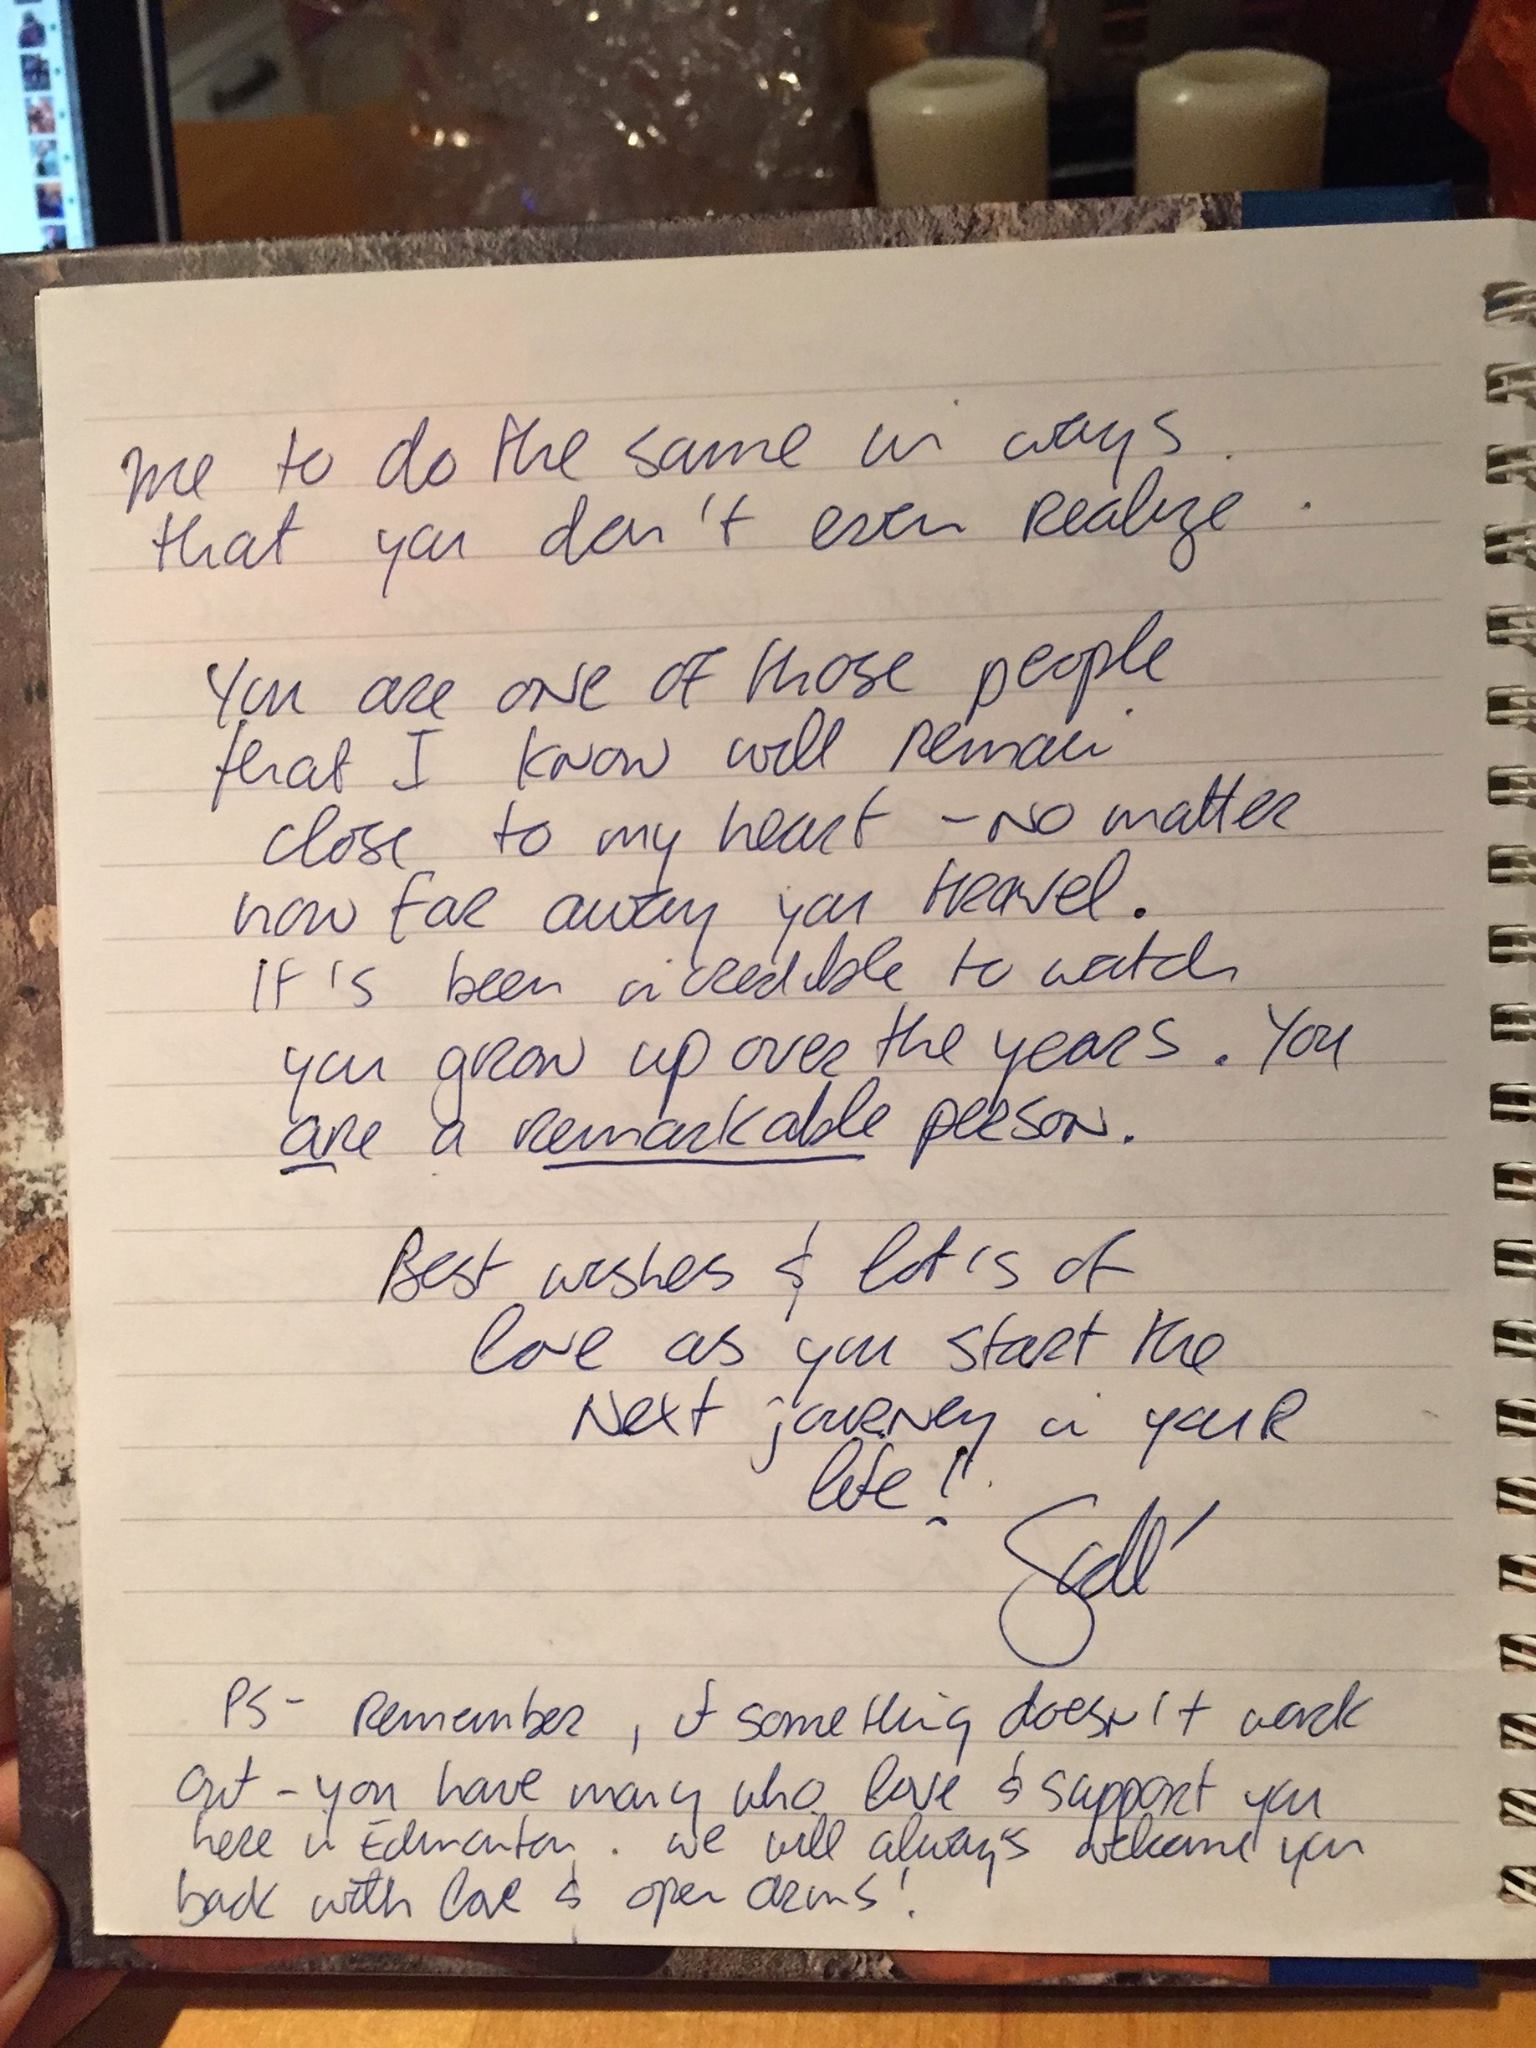 me to do the same in ways
that you don't even realize.
You are one of those people
that I know will remain
close to my heart - no matter
how far away you travel.
It's been incredible to watch
you grow up over the years. You
are a remarkable person.
Best wishes & lot's of
love as you start the
next journey in your
life!
PS - Remember, if something doesn't work
out - you have many who love & support you
here in Edmonton. we will always welcome you
back with love & open arms!